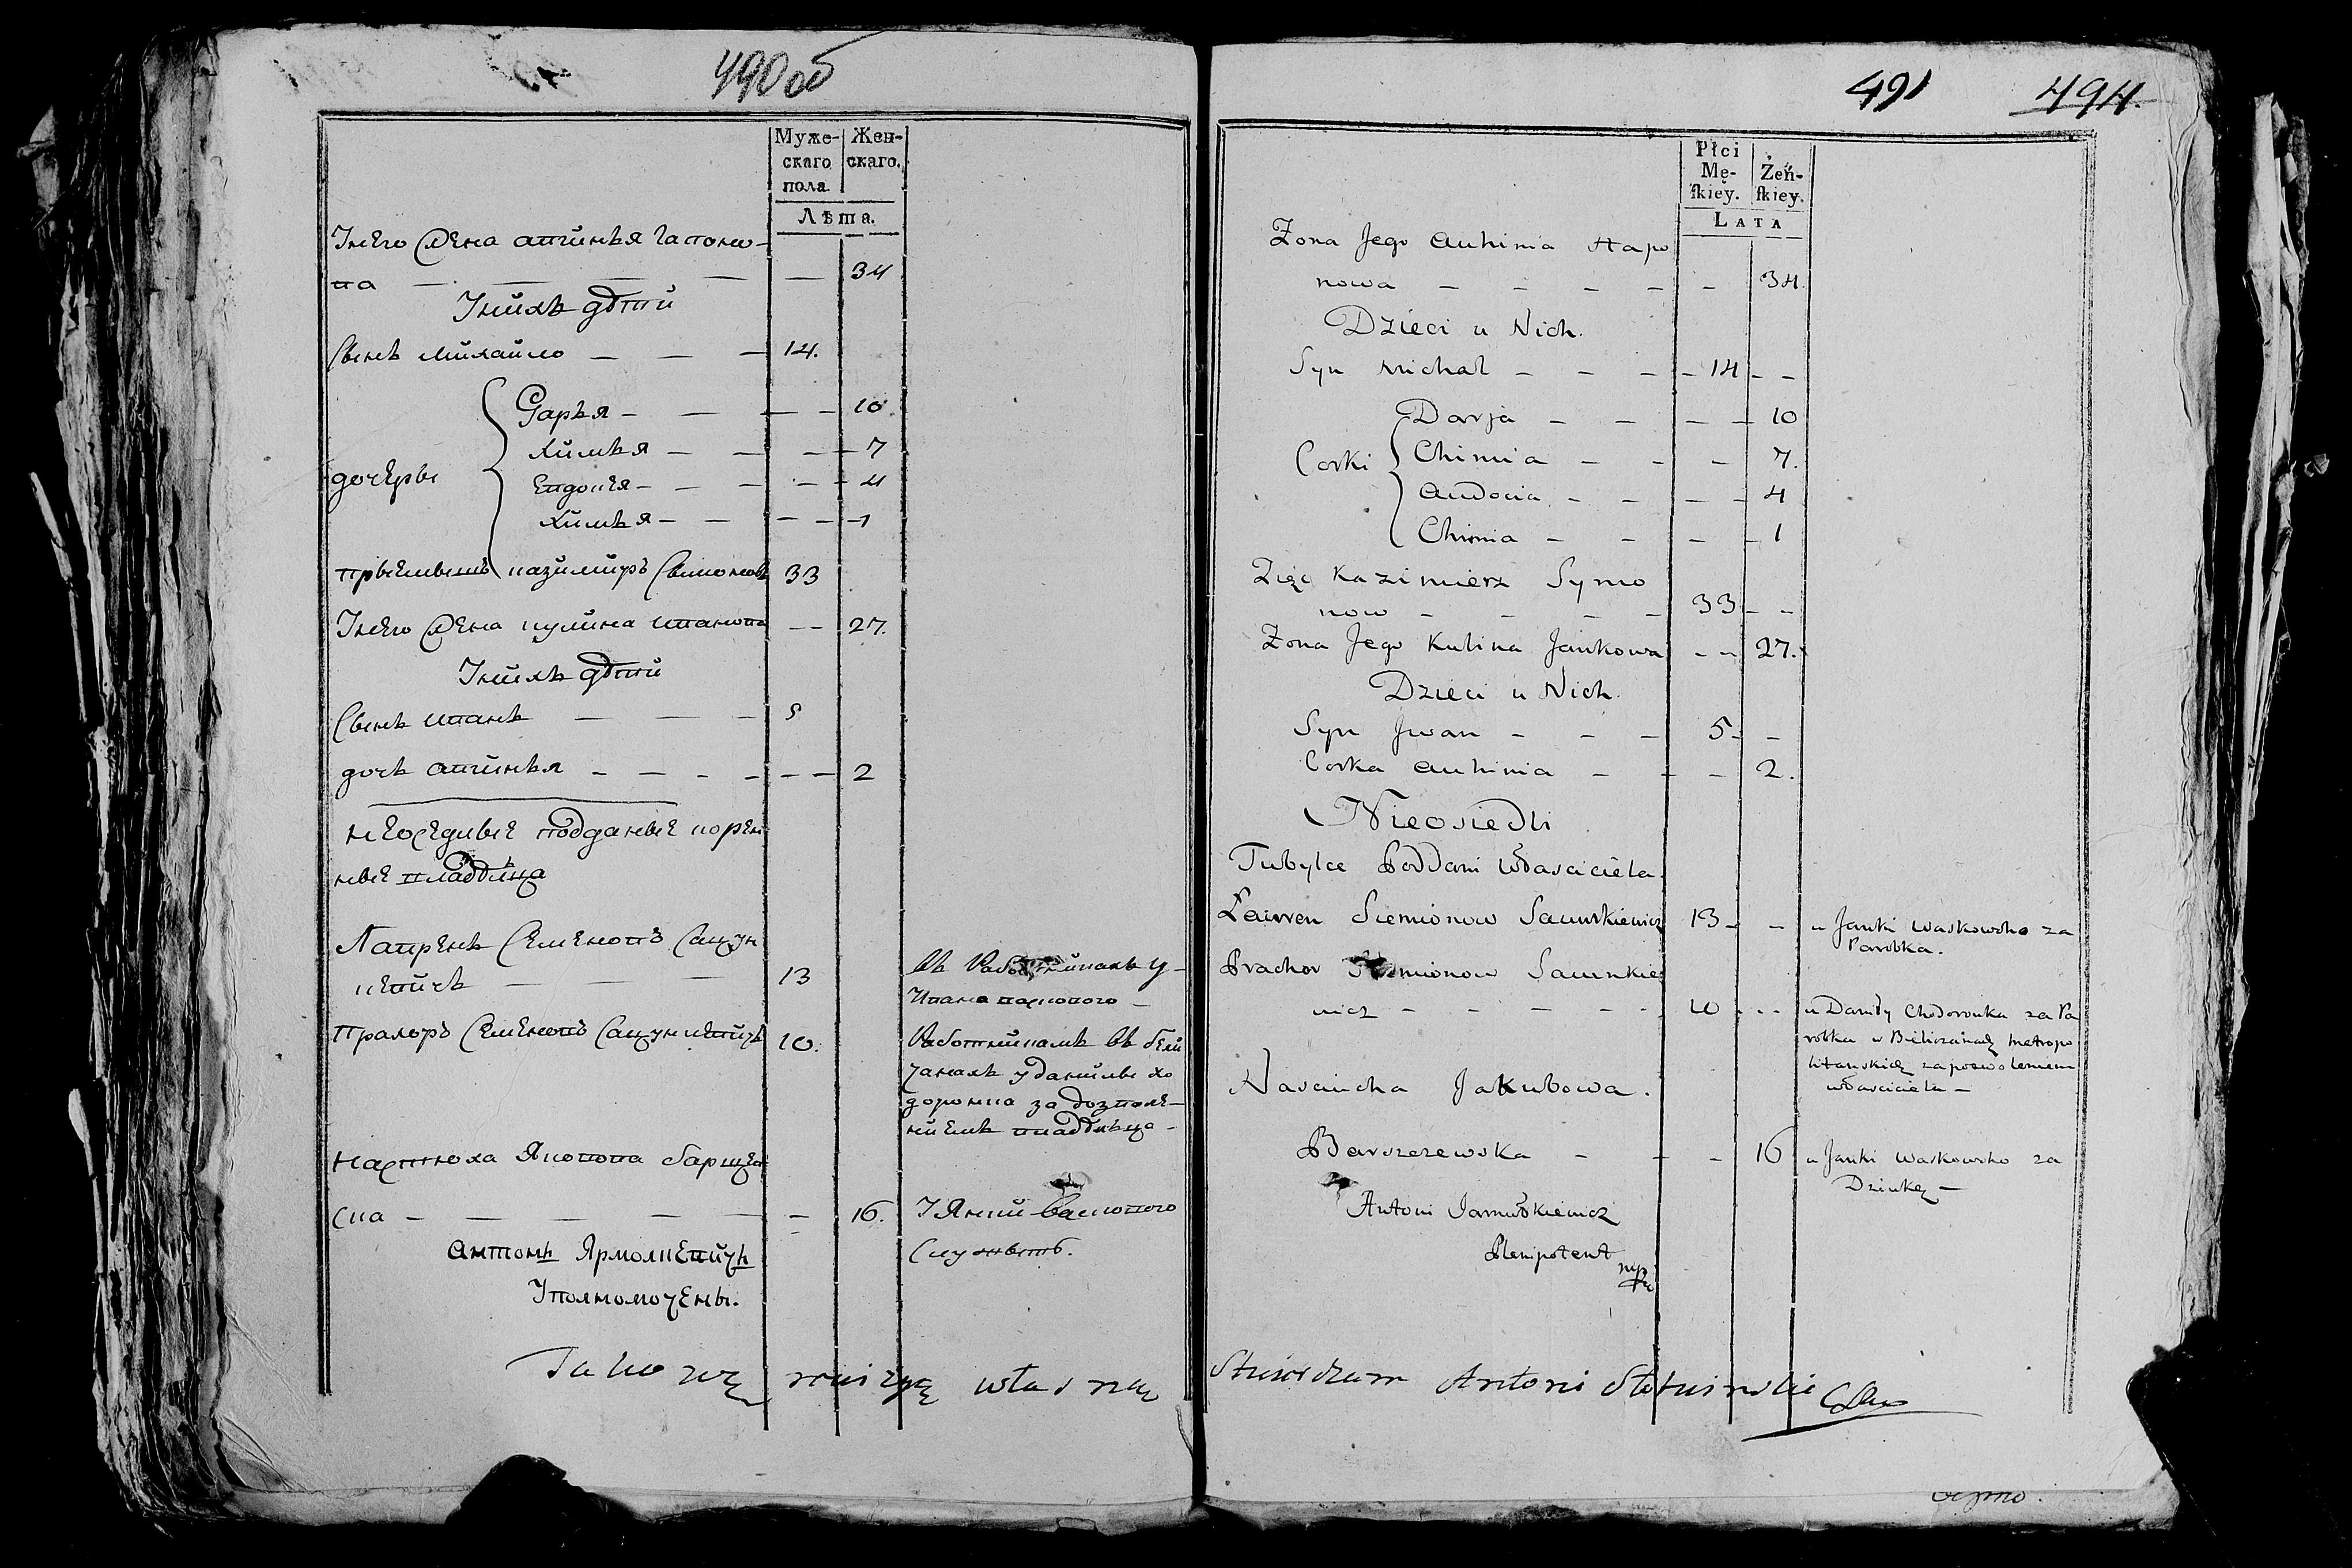 490 об
Муже-
скаго
пола.
Жен-
скаго.
Лѣта.
Унего жена апгинья Гапоно-
ва — — — — 34
Унихъ дѣти
Сынъ михайло — — — 14.
дочеры
Дарья — — — — 10.
Химья — — — — 7
Евдосея — — — — 4
Химья — — — — 1
прыемышъ казимиръ Сымоновъ 33
Унего жена кулина иванова — — 27.
Унихъ дѣти
Сынъ иванъ — — — 5
дочъ апгинья — — — — — — 2
неоседлые подданые корен
ные владѣлца
Лавренъ Семеновъ Сацук
кевичъ — — — 13
въ Работникахъ у
Ивана васкового —
Прахоръ Семеновъ Сацункевичъ 10.
Работникамъ въ бели
чанахъ у данилы хо
доронка за дозволе-
ниемъ владѣлца —
настюха Якопова барщев
ска — — — — — — 16.
У Янки Васкового
Служытъ.
антонъ Ярмолкевичъ
Уполномочены.
491
494.
Płci
Mę-
skiey.
Żeń-
skiey.
LATA
Zona Jego Auhinia Hapo
nowa — — — — — 34.
Dzieci u Nich.
Syn Michał — — — — 14 — —
Corki
Darja — — — — 10
Chimia — — — 7.
Audocia — — — — 4
Chimia — — — — 1
Zięc Kazimierz Symo
now — — — — 33 — —
Zona Jego Kulina Jankowa — — 27.
Dzieci u Nich.
Syn Jwan — — — 5 — —
Corka Auhinia — — — 2.
Nieosiedli
Tubylce Poddani Własciciela.
Lawren Siemionow Saunkiewicz 13 — —
u Janki Waskowoho za
Parobka.
Prachor Siemionow Saunkie
wicz — — — — — 10 — —
u Daniły Chodoronka za Pa
robka w Bieliczanach metropo
litanskich za pozwoleniem
własciciela —
Nasciucha Jakubowa.
Barszczewska — — — 16
u Janki Waskowoho za
Dziwkę —
Antoni Jarmołkiewicz
Plenipotent
mp
Takową rewizyą własną
Stwierdzam Antoni